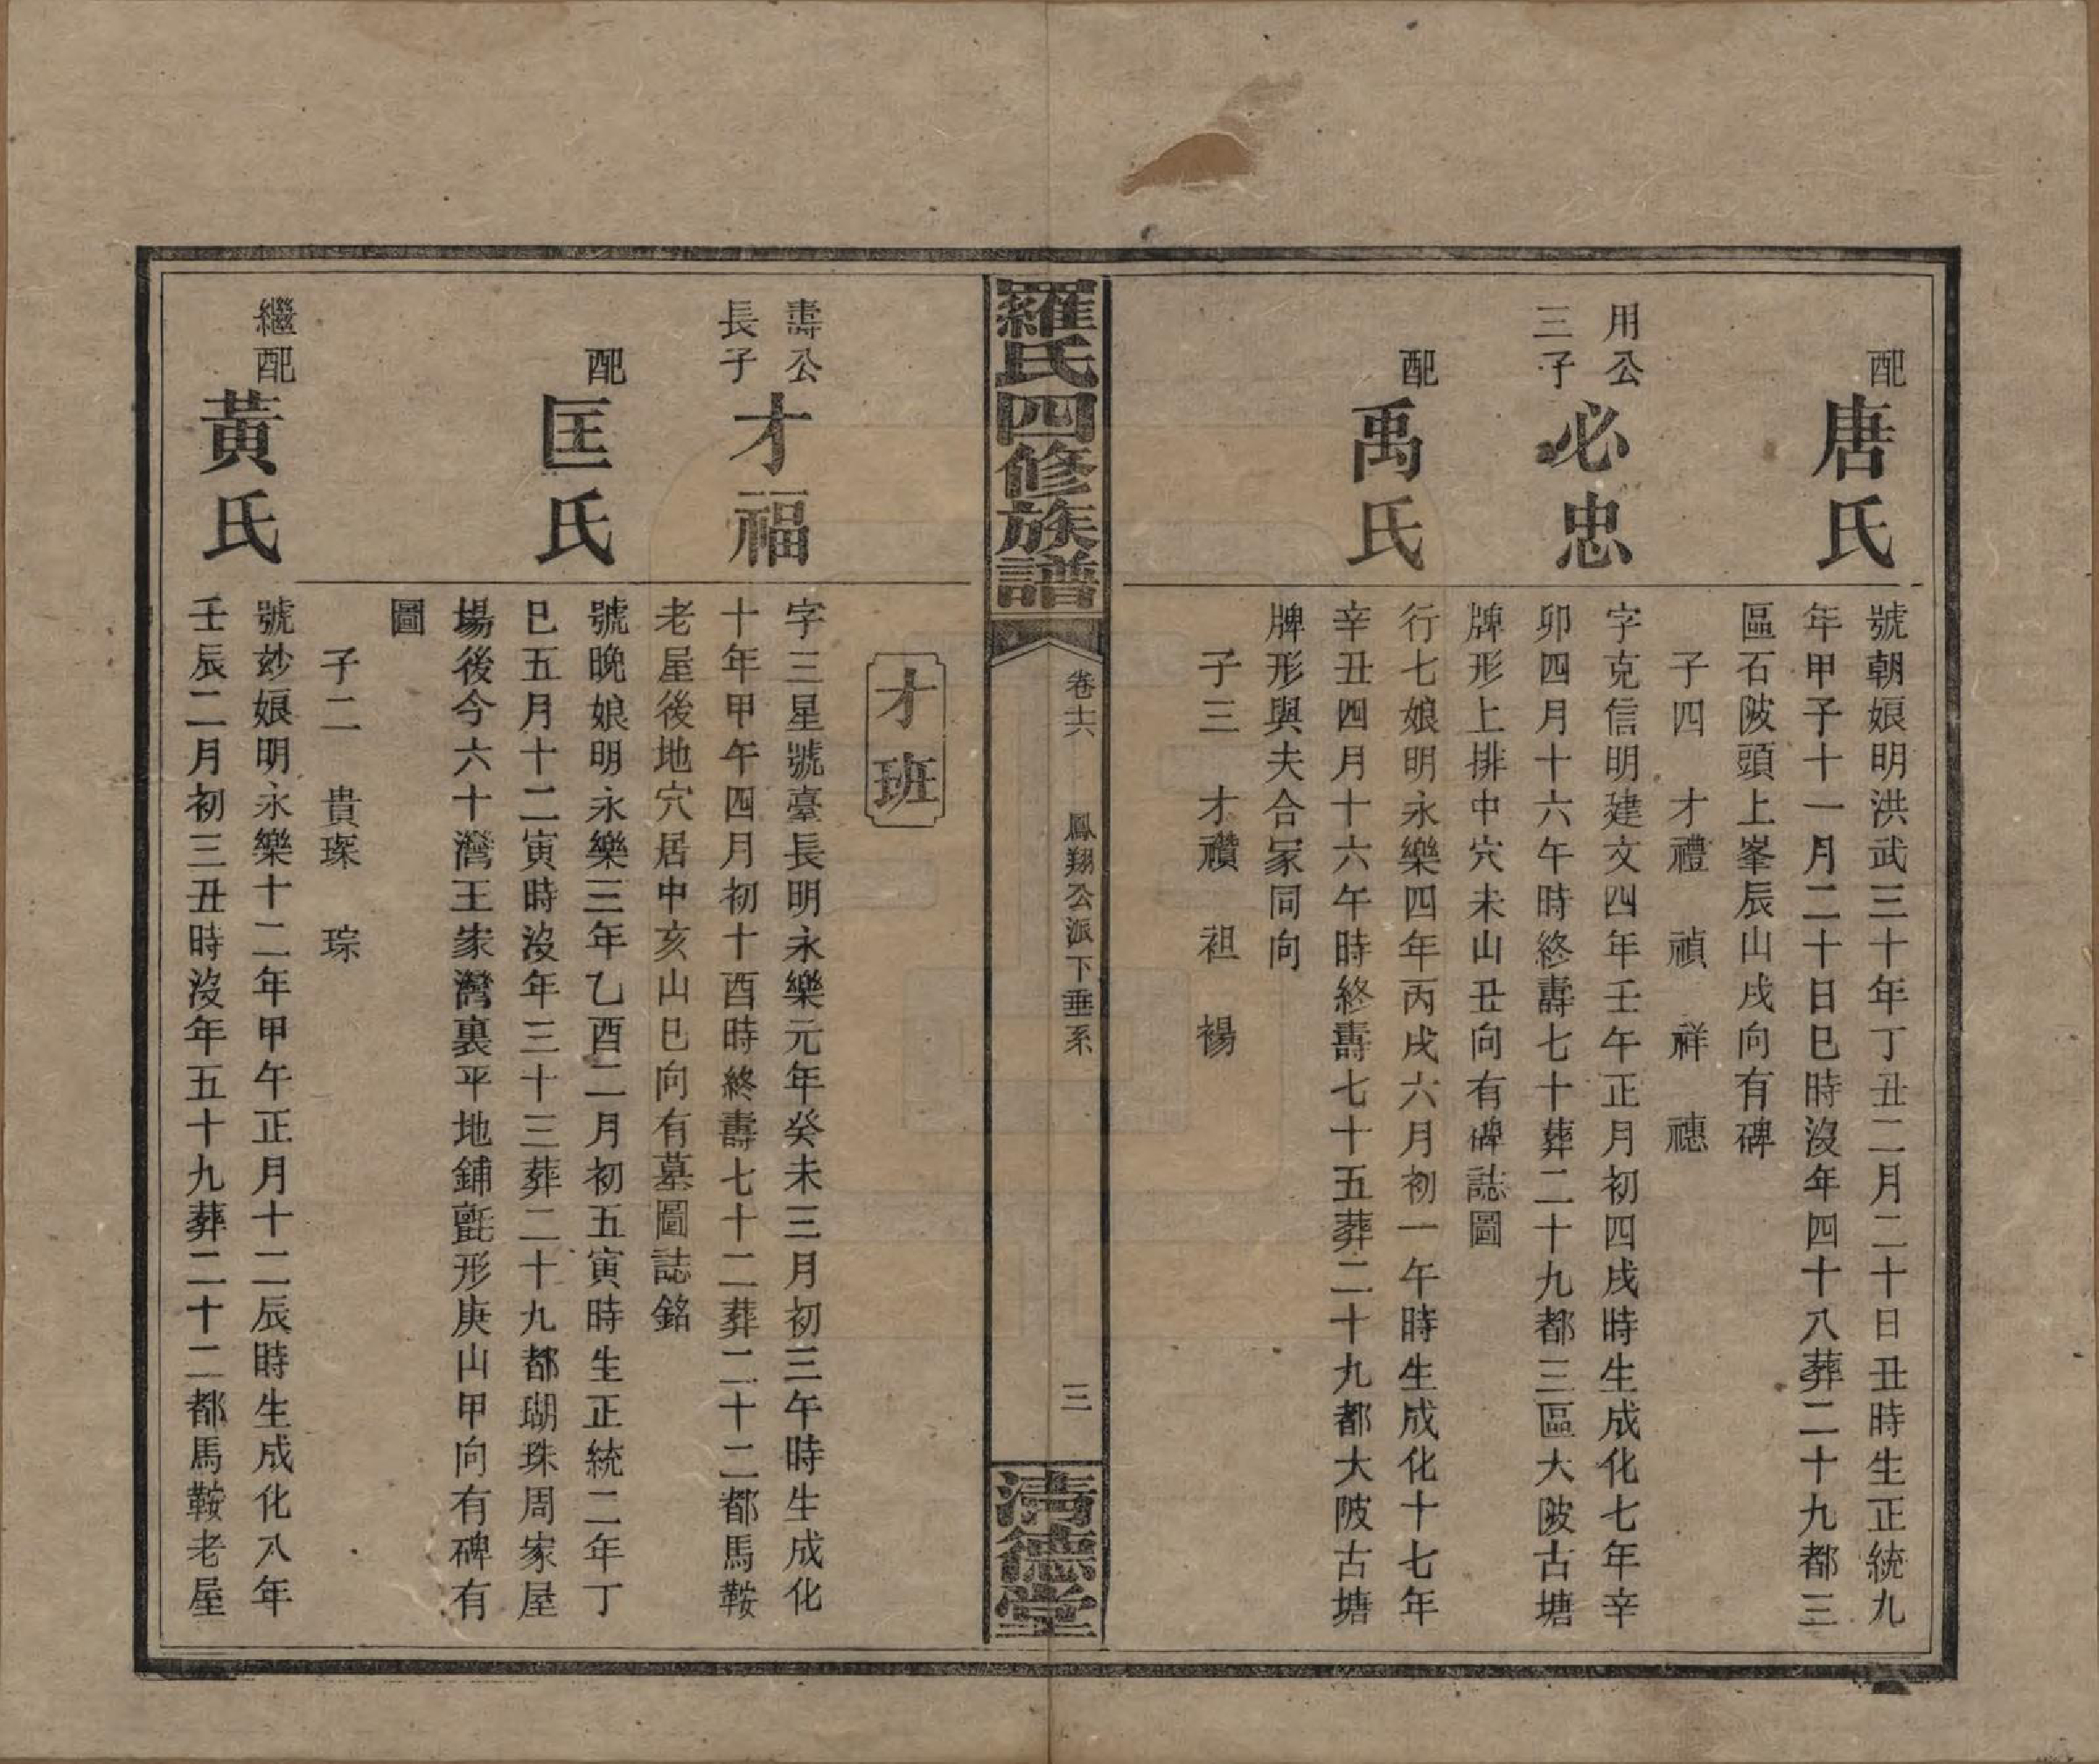 配
唐氏
號朝娘明洪武三十年丁丑二月二十日丑時生正統九
年甲子十一月二十日巳時沒年四十八葬二十九都三
區石陂頭上峯辰山戌向有碑
子四　才禮　禎　祥　禧
用公
三子
必忠
字克信明建文四年壬午正月初四戌時生成化七年辛
卯四月十六午時終壽七十葬二十九都三區大陂古塘
牌形上排中穴未山丑向有碑誌圖
配
禹氏
行七娘明永樂四年丙戌六月初一午時生成化十七年
辛丑四月十六午時終壽七十五葬二十九都大陂古塘
牌形與夫合冢同向
子三　才禶　祖　禓
羅氏四修族譜
卷十六
鳳翔公派下垂系
三
清德堂
才班
壽公
長子
才福
字三星號臺長明永樂元年癸未三月初三午時生成化
十年甲午四月初十酉時終壽七十二葬二十二都馬鞍
老屋後地穴居中亥山巳向有墓圖誌銘
配
匡氏
號晚娘明永樂三年乙酉二月初五寅時生正統二年丁
巳五月十二寅時沒年三十三葬二十九都瑚珠周家屋
場後今六十灣王家灣裏平地鋪氈形庚山甲向有碑有
圖
子二　貴琛　琮
繼配
黃氏
號妙娘明永樂十二年甲午正月十二辰時生成化八年
壬辰二月初三丑時沒年五十九葬二十二都馬鞍老屋